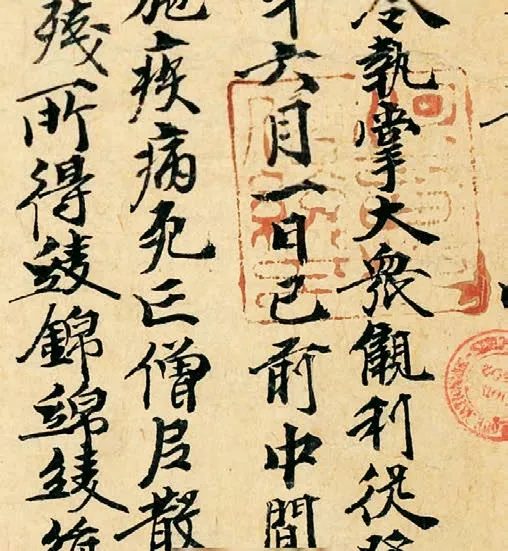 令執掌大眾儭利從
年六月一日已前中間
施疾病死亡僧尼散
殘所得綾錦綿綾